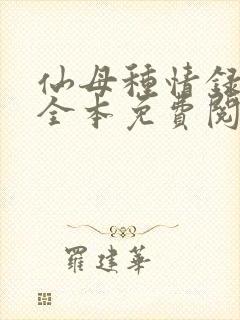 仙母種情録
全本免費閱
羅建華